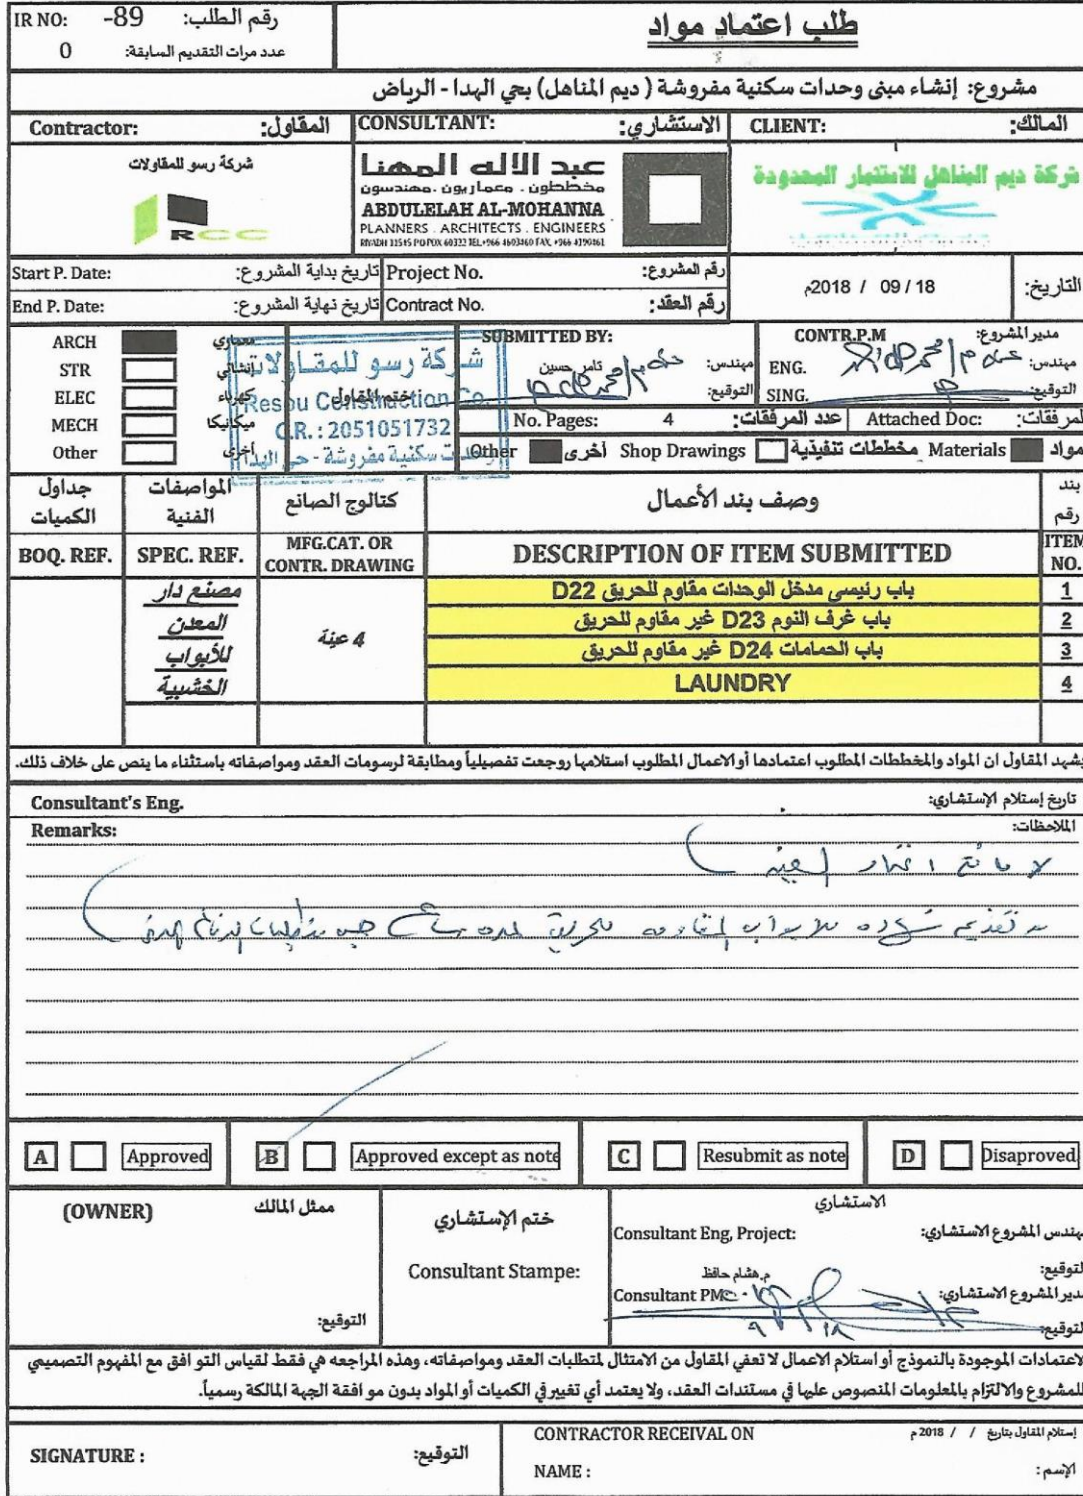 IR NO: -89 رقم الطلب:
0 عدد مرات التقديم السابقة:
طلب اعتماد مواد
مشروع: إنشاء مبنى وحدات سكنية مفروشة ( ديم المناهل) بحي الهدا - الرياض
Contractor: المقاول:
CONSULTANT: الاستشاري:
CLIENT: المالك:
شركة رسو للمقاولات
RCC
عبد الاله المهنا
مخططون . معماريون . مهندسون
ABDULELAH AL-MOHANNA
PLANNERS . ARCHITECTS . ENGINEERS
RIYADH 11515 PO POX 60322 TEL,+966 4603460 FAX, +966 4190461
شركة ديم المناهل للاستثمار المحدودة
Start P. Date: تاريخ بداية المشروع:
Project No. رقم المشروع:
End P. Date: تاريخ نهاية المشروع:
Contract No. رقم العقد:
التاريخ: 18 / 09 / 2018م
ARCH معماري
STR إنشائي
ELEC كهرباء
MECH ميكانيكا
Other أخرى
ختم المقاول
شركة رسو للمقاولات
Resou Construction Co.
C.R. : 2051051732
وحدات سكنية مفروشة - حي الهدا
SUBMITTED BY:
مهندس: تامر حسين
التوقيع:
CONTR.P.M مدير المشروع:
ENG. مهندس:
SING. التوقيع:
No. Pages: 4 عدد المرفقات:
Attached Doc: المرفقات:
Other أخرى Shop Drawings مخططات تنفيذية Materials مواد
جداول الكميات
المواصفات الفنية
كتالوج الصانع
وصف بند الأعمال
بند رقم
BOQ. REF.
SPEC. REF.
MFG.CAT. OR CONTR. DRAWING
DESCRIPTION OF ITEM SUBMITTED
ITEM NO.
مصنع دار
المعدن
للأبواب
الخشبية
4 عينة
باب رئيسي مدخل الوحدات مقاوم للحريق D22 1
باب غرف النوم D23 غير مقاوم للحريق 2
باب الحمامات D24 غير مقاوم للحريق 3
LAUNDRY 4
يشهد المقاول ان المواد والمخططات المطلوب اعتمادها أو الاعمال المطلوب استلامها روجعت تفصيلياً ومطابقة لرسومات العقد ومواصفاته باستثناء ما ينص على خلاف ذلك.
Consultant's Eng. تاريخ إستلام الإستشاري:
Remarks: الملاحظات:
لا مانع اعتماد العينه
تقديم شهاده للابواب المقاومه للحريق لمده
A Approved
B Approved except as note
C Resubmit as note
D Disaproved
(OWNER) ممثل المالك
التوقيع:
ختم الإستشاري
Consultant Stampe:
الاستشاري
Consultant Eng, Project: مهندس المشروع الاستشاري:
التوقيع:
م.هشام حافظ
Consultant PM مدير المشروع الاستشاري:
التوقيع:
الاعتمادات الموجودة بالنموذج أو استلام الاعمال لا تعفي المقاول من الامتثال لمتطلبات العقد ومواصفاته، وهذه المراجعه هي فقط لقياس التوافق مع المفهوم التصميمي
للمشروع والالتزام بالمعلومات المنصوص عليها في مستندات العقد، ولا يعتمد أي تغيير في الكميات أو المواد بدون موافقة الجهة المالكة رسمياً.
SIGNATURE : التوقيع:
CONTRACTOR RECEIVAL ON إستلام المقاول بتاريخ / / 2018 م
NAME : الإسم :